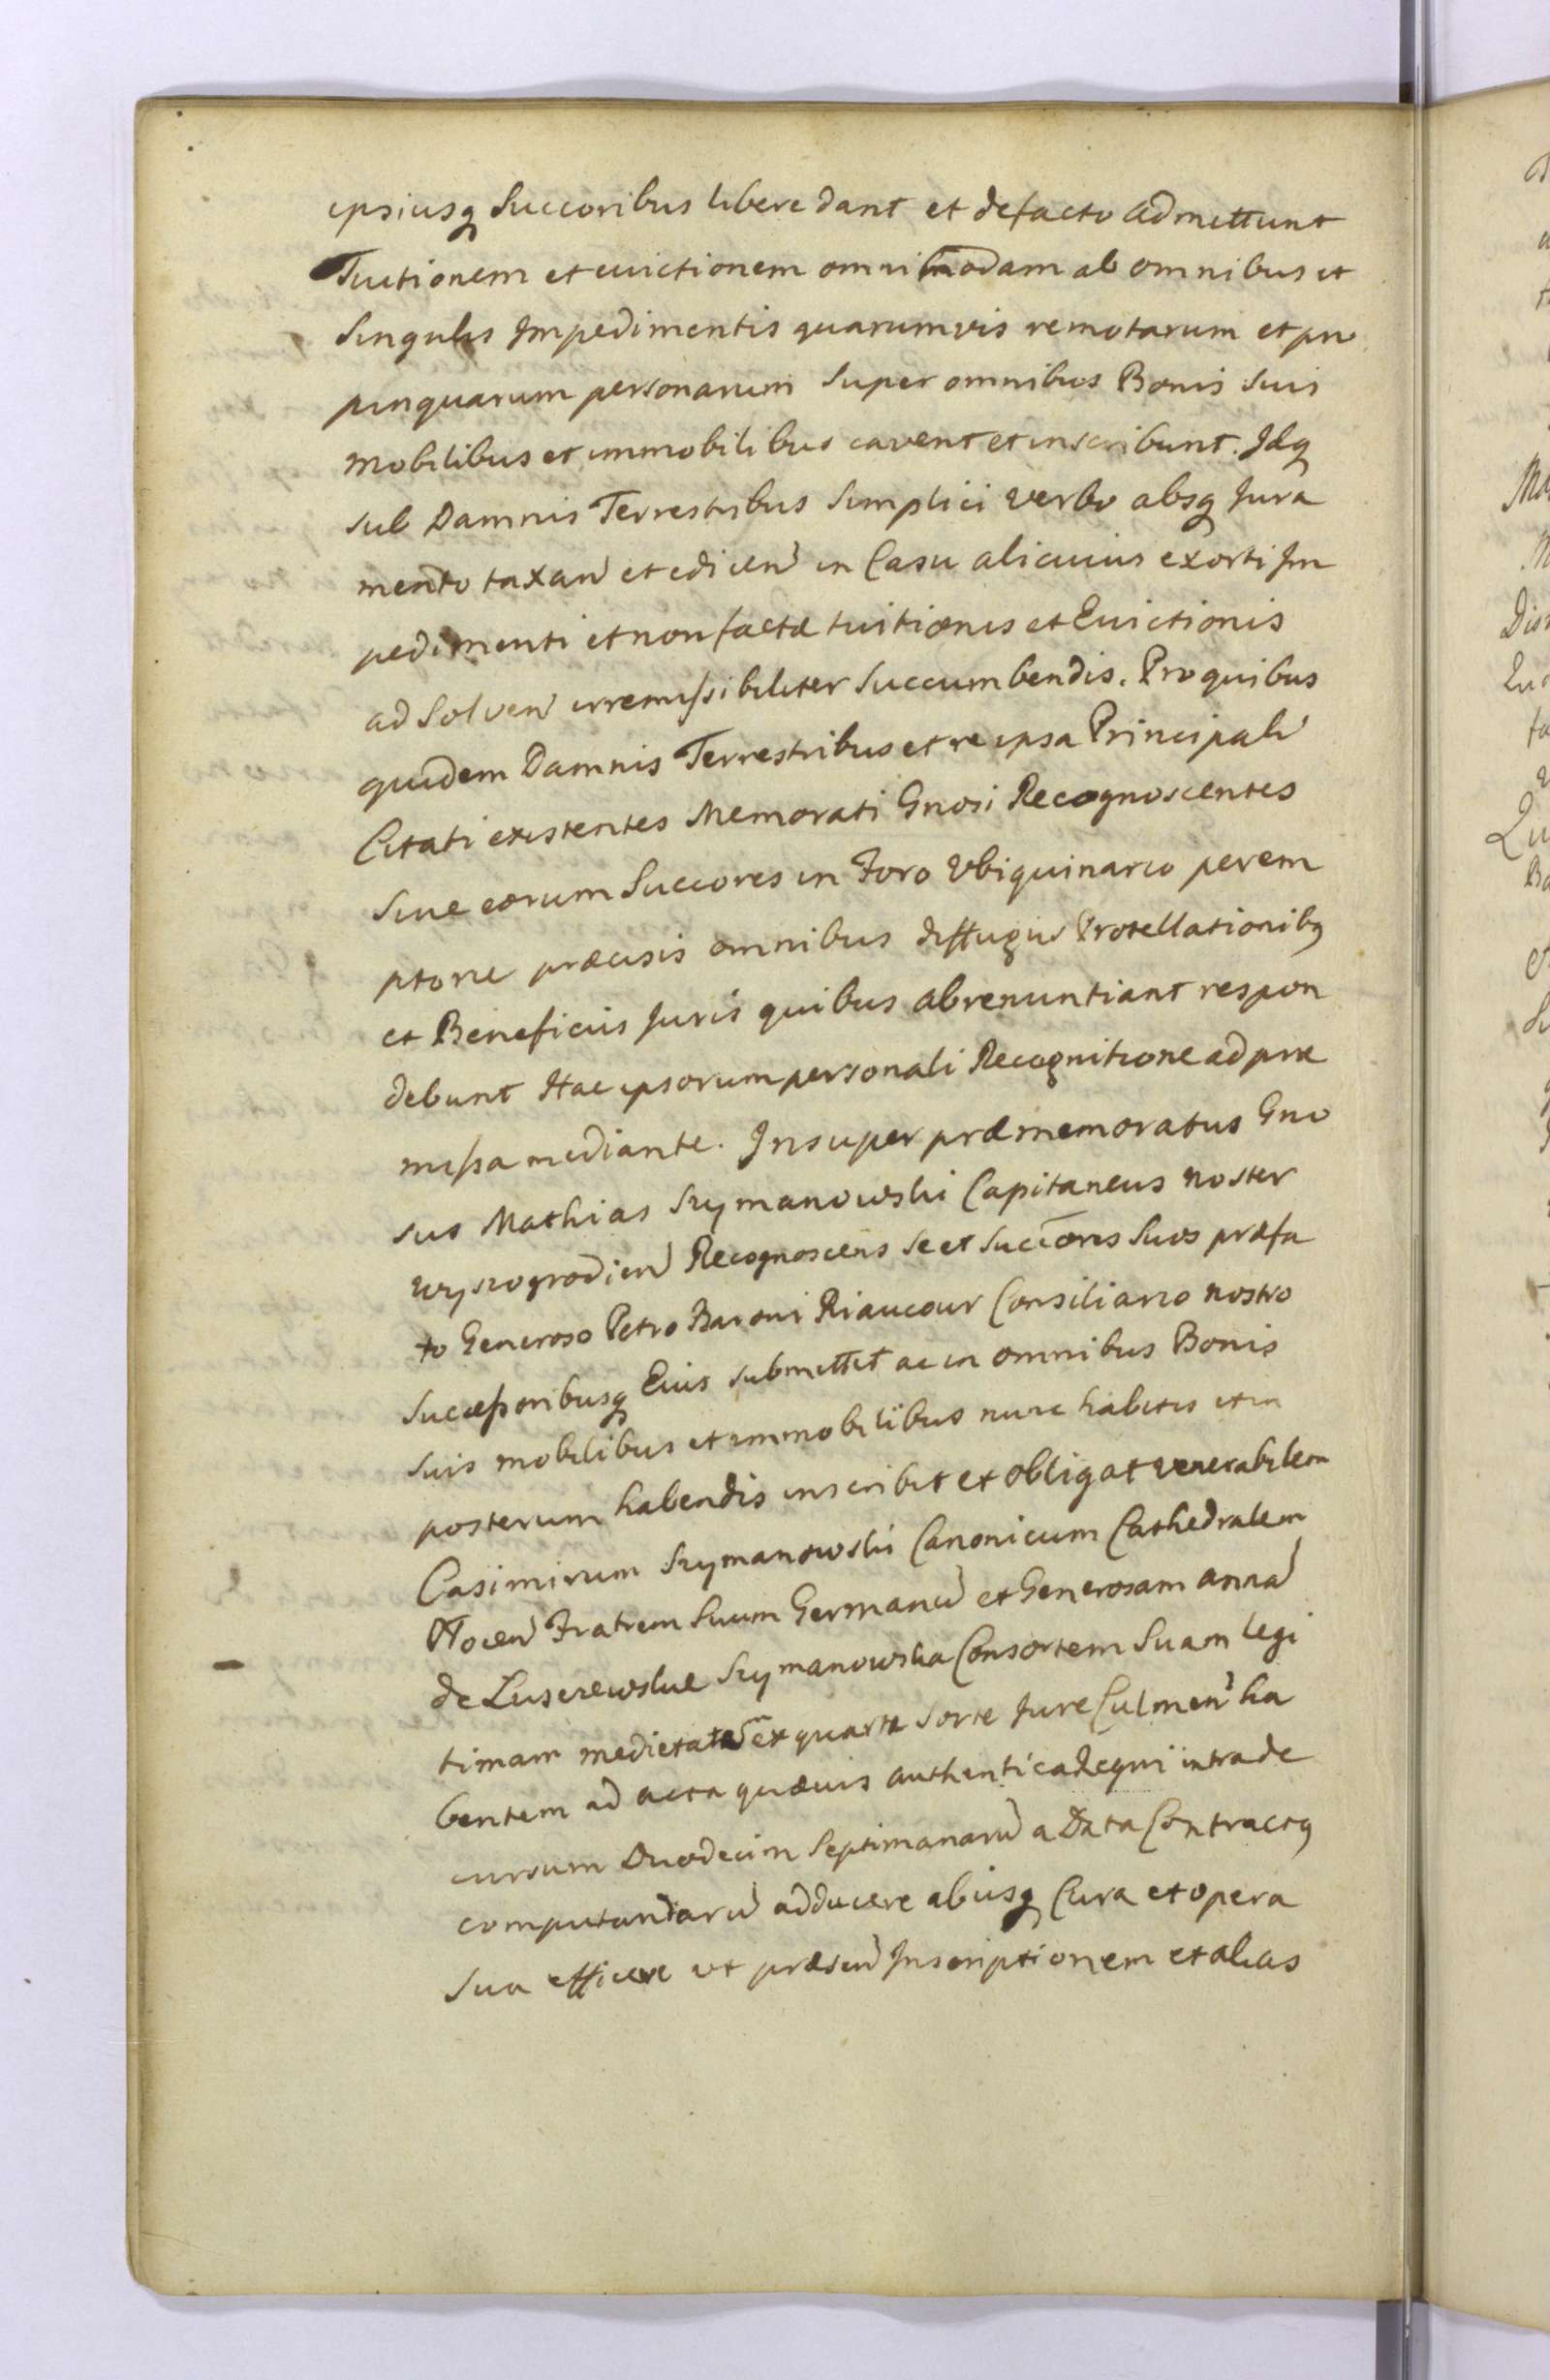 ipsiusq Succoribus libere dant et defacto admittunt
Tuitionem et evictionem omnimodam ab omnibus et
Singulis Impedimentis quarumvis remotarum et pro
pinquarum personarum Super omnibus Bonis Suis
mobilibus et immobilibus cavent et inscribunt. Idq
sub Damnis Terrestribus Simplici verbo absq Jura
mento taxan et edicen in Casu alicuius exorti Im
pedimenti et non factæ tuitionis et Evictionis
ad Solven irremissibiliter Succumbendis. Pro quibus
quidem Damnis Terrestribus et re ipsa Principali
Citati existentes Memorati Gnosi Recognoscentes
Sive eorum Succores in Foro Ubiquinario perem
ptorie præcisis omnibus diffugiis Protellationibq
et Beneficiis Juris quibus abrenuntiant respon
debunt Hac ipsorum personali Recognitione ad præ
missa mediante. Insuper præmemoratus Gno
sus Mathias Szymanowski Capitaneus noster
Wyszogrodien Recognoscens Se et Succores Suos præfa
to Generoso Petro Baroni Riaucour Consiliario nostro
Successoribusq Eius submittit ac in omnibus Bonis
Suis mobilibus et immobilibus nunc habitis et in
posterum habendis inscribit et obligat venerabilem
Casimirum Szymanowski Canonicum Cathedralem
Plocen Fratrem Suum Germanu et Generosam Anna
de Luszczewskie Szymanowska Consortem Suam legi
timam medietatem ex quarta Sorte Jure Culmen ha
bentem ad acta quævis authentica Regni intra de
cursum Duodecim Septimanaru a Data Contractq
computandaru adducere abiisq Cura et opera
Sua efficere ut præsen Inscriptionem et alias